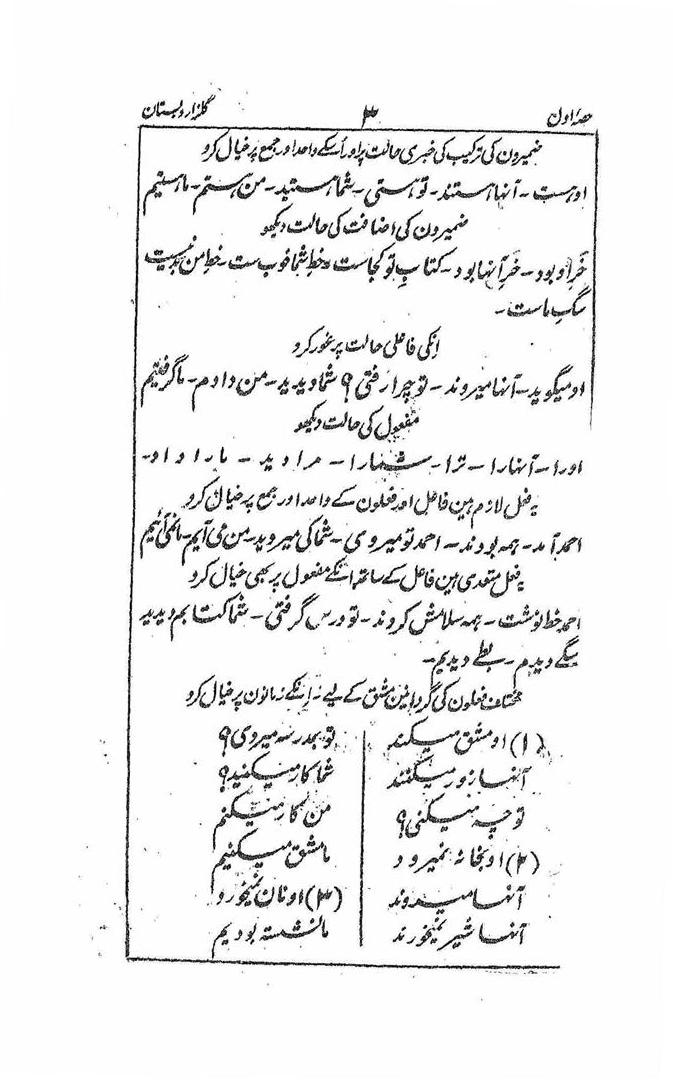 حصۂ اول ۳ گلزار دبستان
ضمیرون کی ترکیب کی خبری حالت پر اور اُسکے واحد اور جمع پر خیال کرو
اوہست - آنہا ہستند - تو ہستی - شما ہستید - من ہستم - ما ہستیم
ضمیرون کی اضافت کی حالت دیکھو
خَرِ او بود - خَرِ آنہا بود - کتابِ تو کجاست - خطِ شما خوب ست - خطِ من بد نیست
سگِ ماست -
اِنکی فاعلی حالت پر غور کرو
او میگوید - آنہا میروند - تو چرا رفتی ؟ شما دیدید - من دادم - ما گرفتیم
مفعول کی حالت دیکھو
اورا - آنہارا - ترا - شمارا - مرا دید - مارا داد -
یہ فعل لازم ہین فاعل اور فعلون کے واحد اور جمع پر خیال کرو
احمد آمد - ہمہ بودند - احمد تو میروی - شما کی میروید - من می آیم - ما نمی آئیم
یہ فعل متعدی ہین فاعل کے ساتھ انکے مفعول پر بھی خیال کرو
احمد خط نوشت - ہمہ سلامش کردند - تو درس گرفتی - شما کتابم دیدید
سگے دیدم - بطے دیدیم -
مختلف فعلون کی گردانین مشق کے لیے - اِنکے زمانون پر خیال کرو
(۱) او مشق میکند
آنہا زور میکنند
تو چہ میکنی ؟
(۲) او بخانہ نمیرود
آنہا میدوند
آنہا شیر نمیخورند
تو بمدرسہ میروی ؟
شما کار میکنید ؟
من کار میکنم
ما مشق میکنیم
(۳) او نان نمیخورد
ما نشستہ بودیم